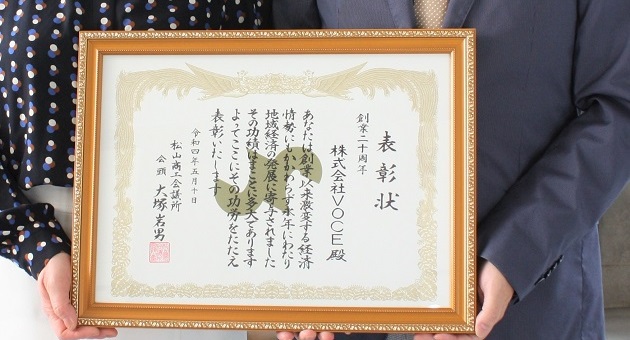 表彰状
創業二十周年
株式会社VOCE殿
あなたは創業以来激変する経済
情勢にもかかわらず永年にわたり
地域経済の発展に寄与されました
その功績はまことに多大であります
よってここにその功労をたたえ
表彰いたします
令和四年五月十日
松山商工会議所
会頭 大塚岩男